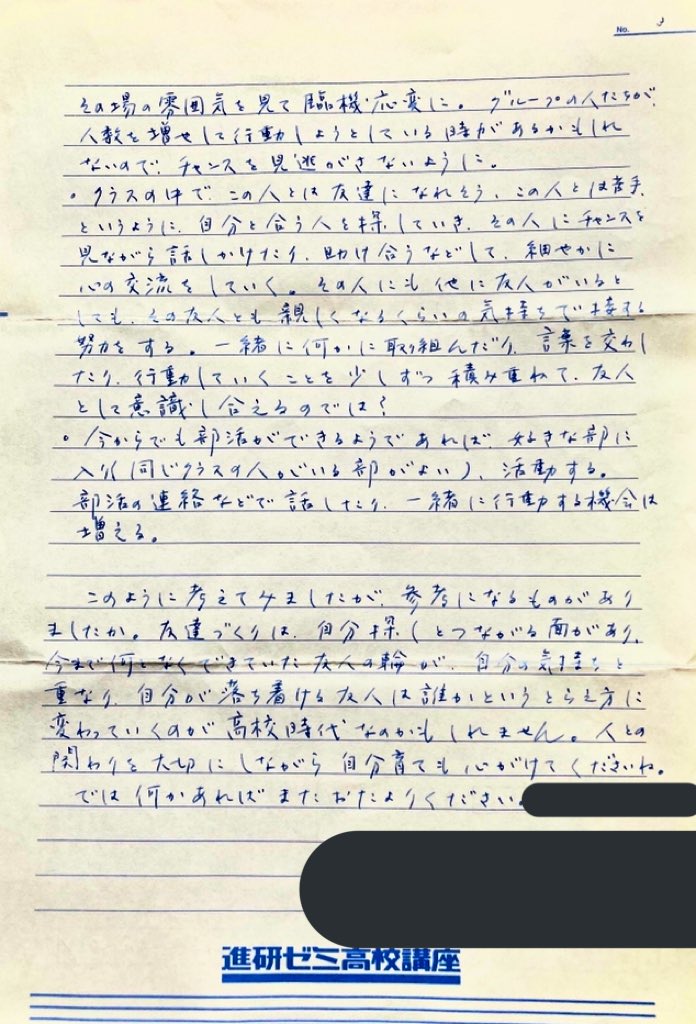 No. 3
その場の雰囲気を見て臨機応変に。グループの人たちが、
人数を増せして行動しようとしている時があるかもしれ
ないので、チャンスを見逃がさないように。
・クラスの中で、この人とは友達になれそう、この人とは苦手、
というように、自分と合う人を探していき、その人にチャンスを
見ながら話しかけたり、助け合うなどして、細やかに
心の交流をしていく。その人にも他に友人がいると
しても、その友人とも親しくなるくらいの気持ちで接する
努力をする。一緒に何かに取組んだり、言葉を交わし
たり、行動していくことを少しずつ積み重ねて、友人
として意識し合えるのでは?
・今からでも部活ができるようであれば、好きな部に
入り(同じクラスの人がいる部がよい)、活動する。
部活の連絡などで話したり、一緒に行動する機会は
増える。
このように考えてみましたが、参考になるものがあり
ましたか。友達づくりは、自分探しとつながる面があり、
今まで何となくできていた友人の輪が、自分の気持ちと
重なり、自分が落ち着ける友人は誰かというとらえ方に
変わっていくのが高校時代なのかもしれません。人との
関わりを大切にしながら自分育ても心がけてくださいね。
では何かあればまたおたよりください。
進研ゼミ高校講座